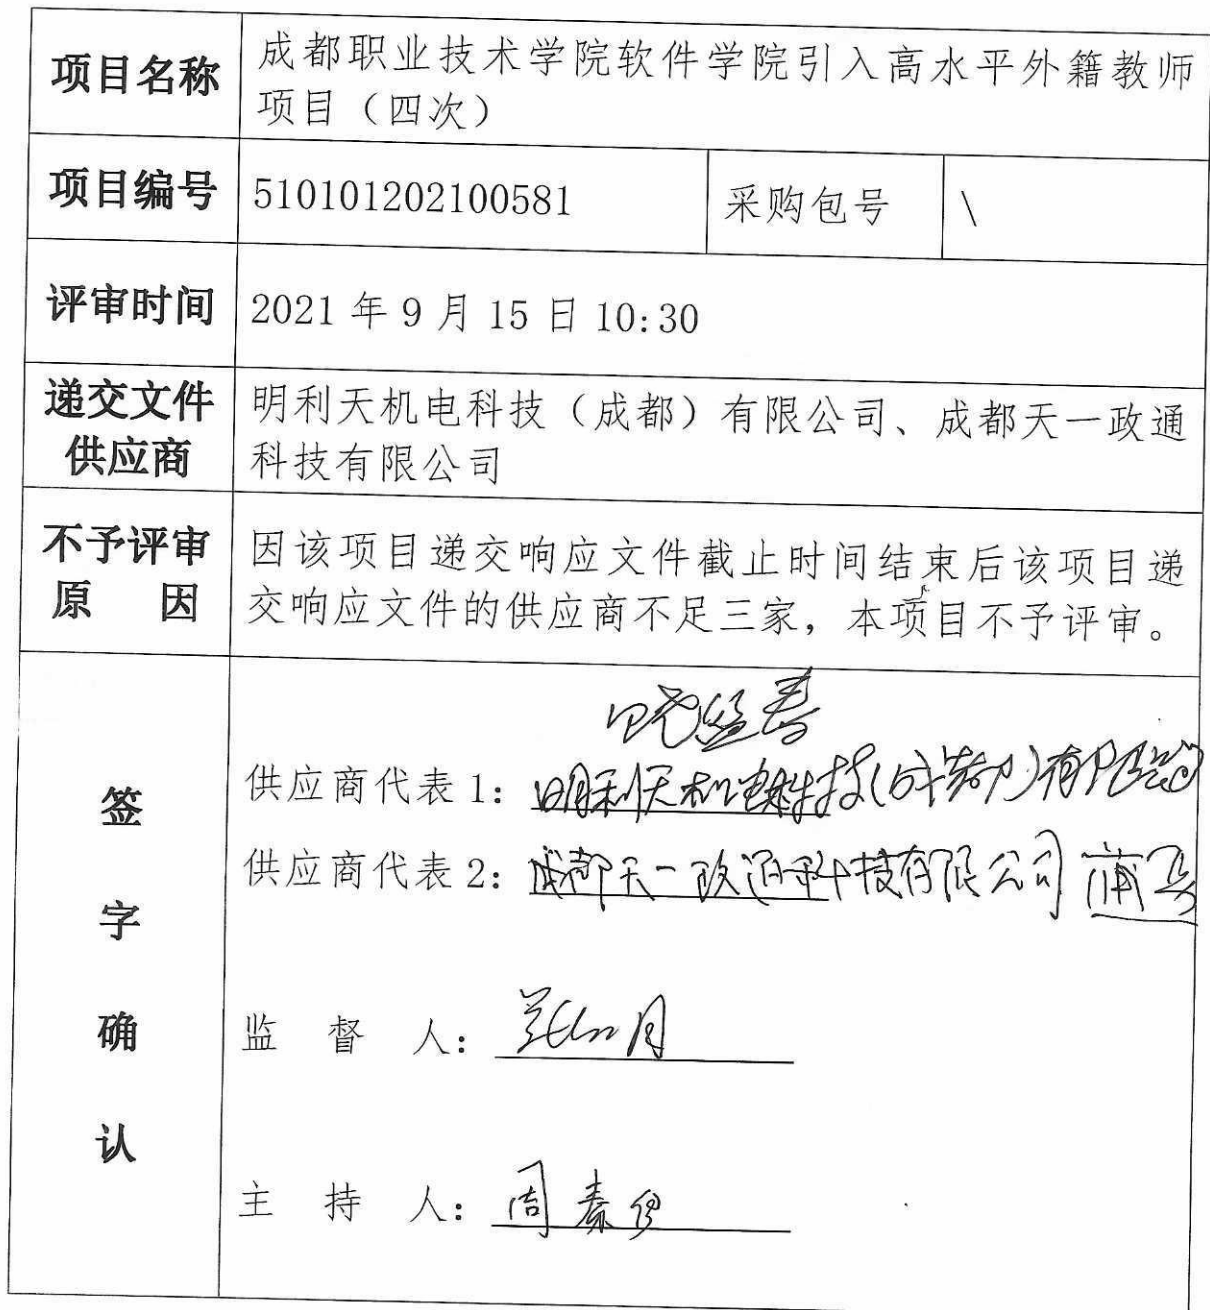 项目名称
成都职业技术学院软件学院引入高水平外籍教师
项目（四次）
项目编号
510101202100581
采购包号
\
评审时间
2021 年 9 月 15 日 10:30
递交文件
供应商
明利天机电科技（成都）有限公司、成都天一政通
科技有限公司
不予评审
原 因
因该项目递交响应文件截止时间结束后该项目递
交响应文件的供应商不足三家，本项目不予评审。
签
字
确
认
供应商代表 1：明利天机电科技(成都)有限公司
供应商代表 2：成都天一政通科技有限公司
监 督 人：
主 持 人：周